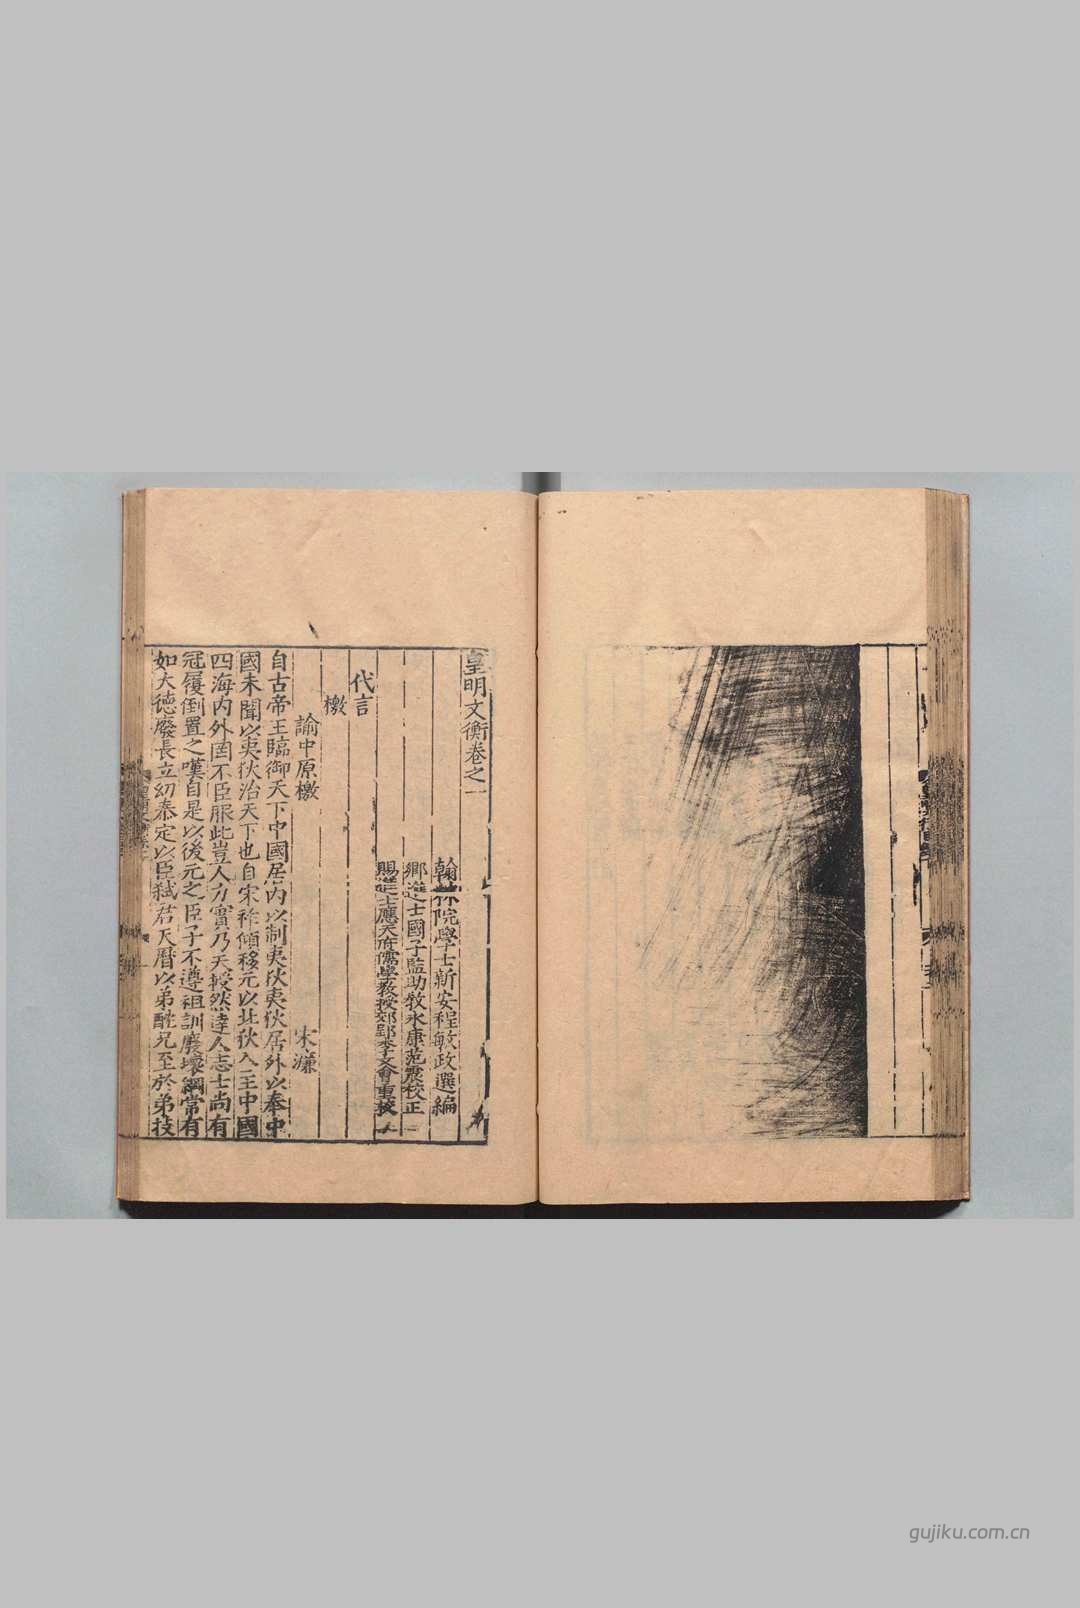 皇明文衡卷之一
翰林院學士新安程敏政選編
鄉進士國子監助教永康范震校正
賜進士應天府儒學教授郊郢李文會重校
代言
檄
諭中原檄
宋濂
自古帝王臨御天下中國居內以制夷狄夷狄居外以奉中
國未聞以夷狄治天下也自宋祚傾移元以北狄入主中國
四海內外罔不臣服此豈人力實乃天授然達人志士尚有
冠履倒置之嘆自是以後元之臣子不遵祖訓廢壞綱常有
如大德廢長立幼泰定以臣弑君天曆以弟酖兄至於弟技
gujiku.com.cn